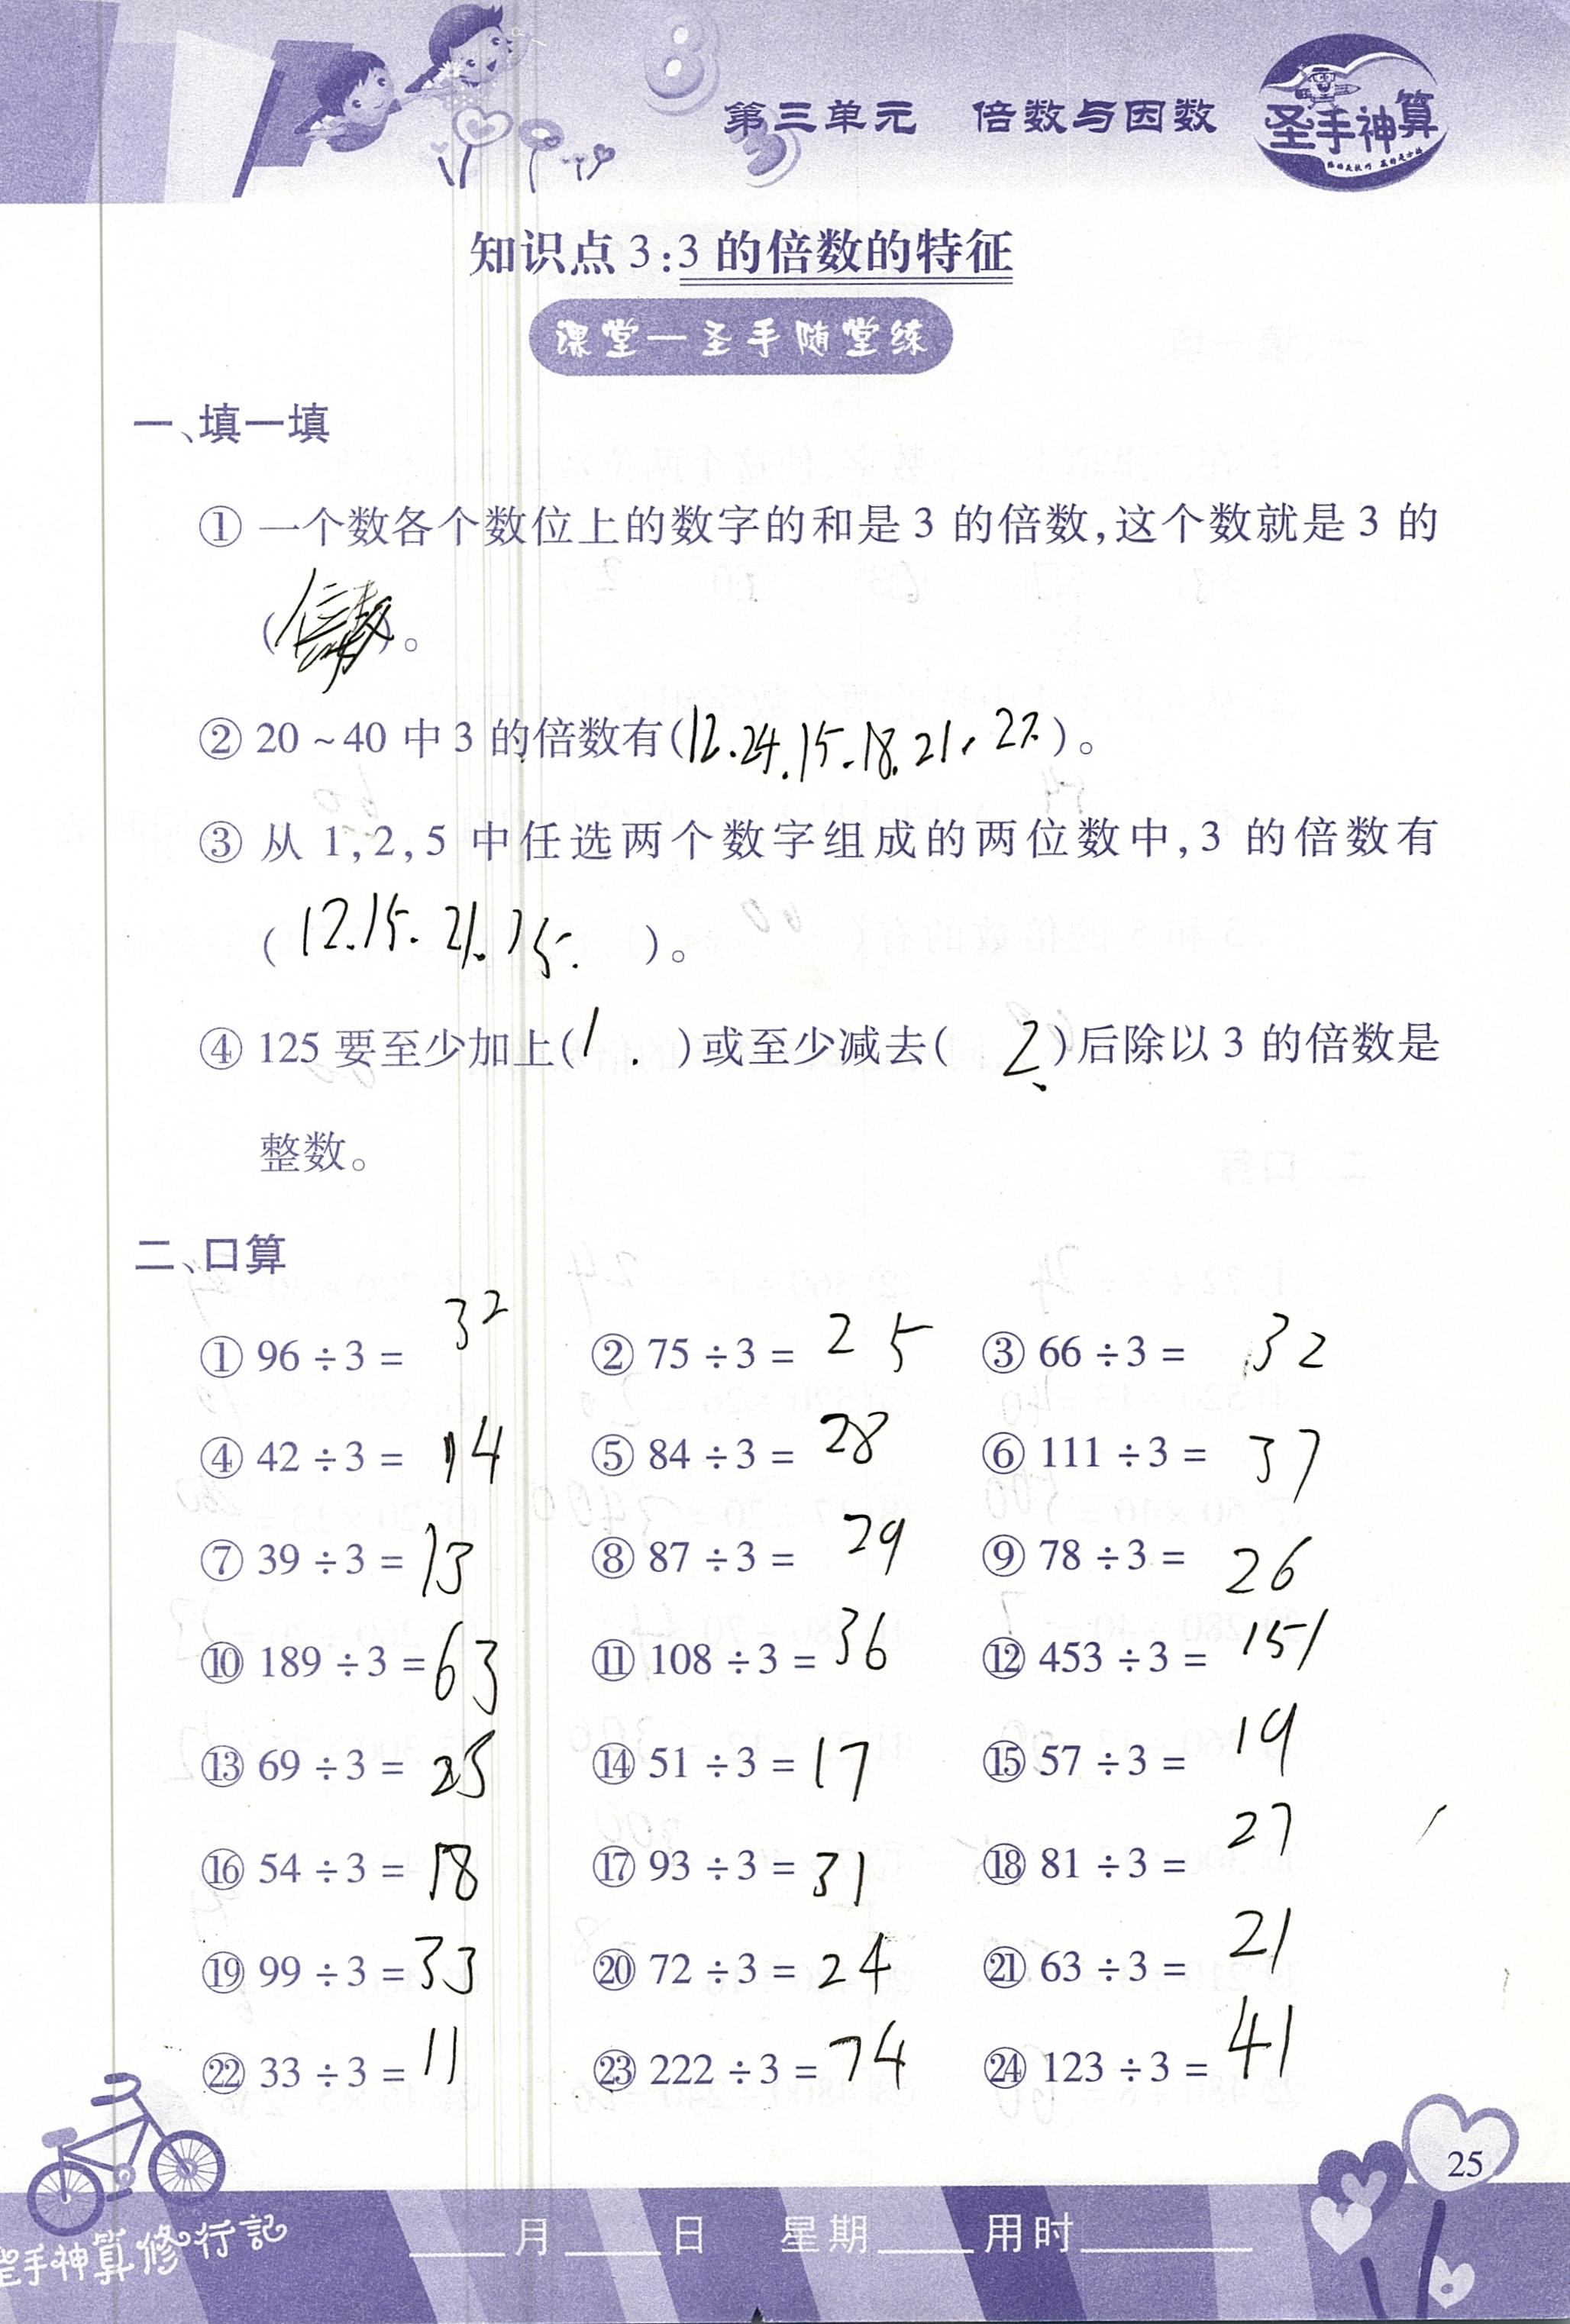 第三单元 倍数与因数
圣手神算
知识点3:3的倍数的特征
课堂一圣手随堂练
一、填一填
① 一个数各个数位上的数字的和是3的倍数,这个数就是3的
(倍数)。
② 20~40中3的倍数有(12.24.15.18.21.27.)。
③ 从1,2,5中任选两个数字组成的两位数中,3的倍数有
(12.15.21.15.)。
④ 125要至少加上(1.)或至少减去(2.)后除以3的倍数是
整数。
二、口算
① 96÷3= 32 ② 75÷3= 25 ③ 66÷3= 32
④ 42÷3= 14 ⑤ 84÷3= 28 ⑥ 111÷3= 37
⑦ 39÷3= 13 ⑧ 87÷3= 29 ⑨ 78÷3= 26
⑩ 189÷3= 63 ⑪ 108÷3= 36 ⑫ 453÷3= 151
⑬ 69÷3= 25 ⑭ 51÷3= 17 ⑮ 57÷3= 19
⑯ 54÷3= 18 ⑰ 93÷3= 31 ⑱ 81÷3= 27
⑲ 99÷3= 33 ⑳ 72÷3= 24 ㉑ 63÷3= 21
㉒ 33÷3= 11 ㉓ 222÷3= 74 ㉔ 123÷3= 41
25
圣手神算修行记
____月____日 星期____用时____